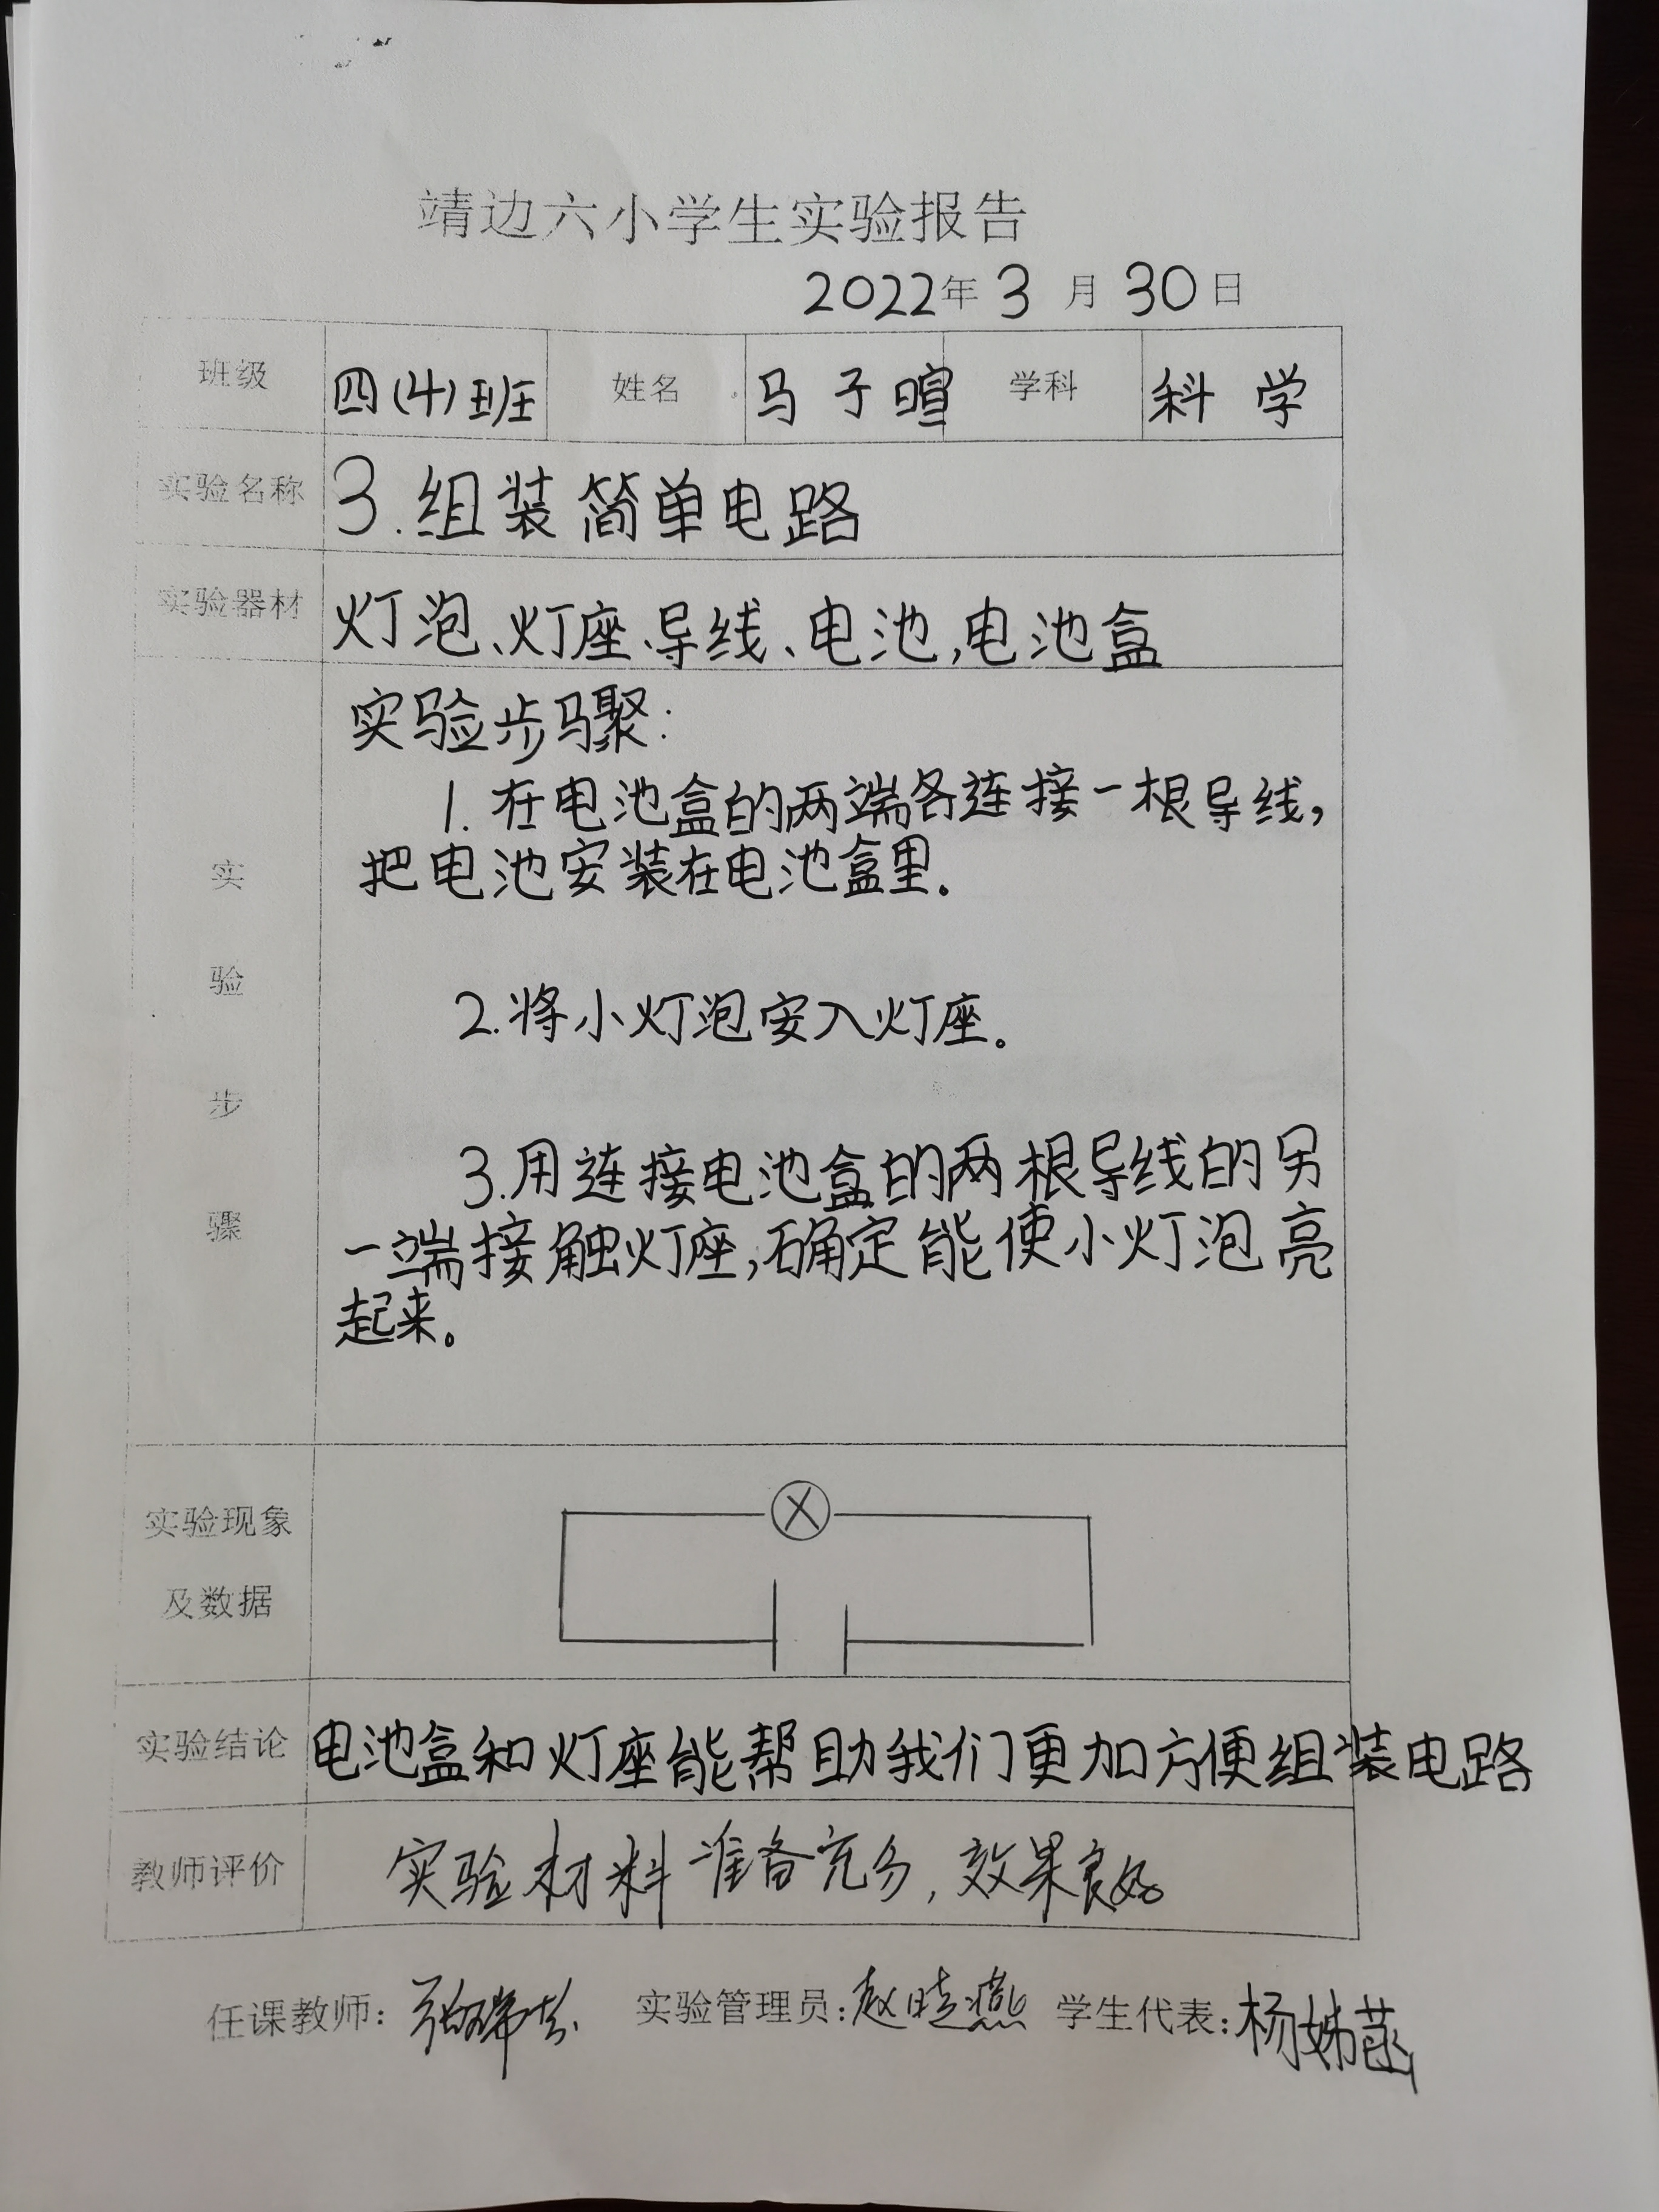 靖边六小学生实验报告
2022年 3 月 30日
班级 四(4)班 姓名 马子暄 学科 科学
实验名称 3.组装简单电路
实验器材 灯泡、灯座、导线、电池,电池盒
实验步骤
实验步骤:
1.在电池盒的两端各连接一根导线,
把电池安装在电池盒里.
2.将小灯泡安入灯座。
3.用连接电池盒的两根导线的另
一端接触灯座,确定能使小灯泡亮
起来。
实验现象
及数据
实验结论 电池盒和灯座能帮助我们更加方便组装电路
教师评价 实验材料准备充分,效果良好
任课教师: 实验管理员:赵晓燕 学生代表:杨姊菡